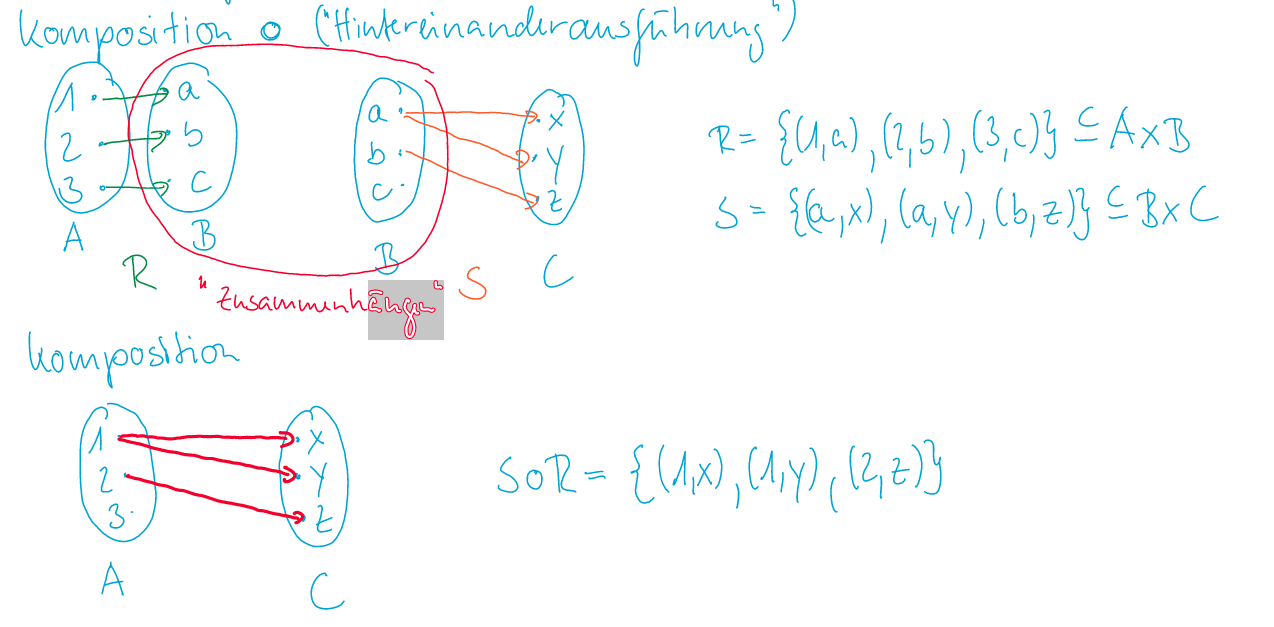 Komposition ∘ ("Hintereinanderausführung")
1 a a x
2 b b y
3 c c z
A B B C
R S
"Zusammenhängen"
R = {(1,a), (2,b), (3,c)} ⊆ A×B
S = {(a,x), (a,y), (b,z)} ⊆ B×C
Komposition
1 x
2 y
3 z
A C
S∘R = {(1,x), (1,y), (2,z)}